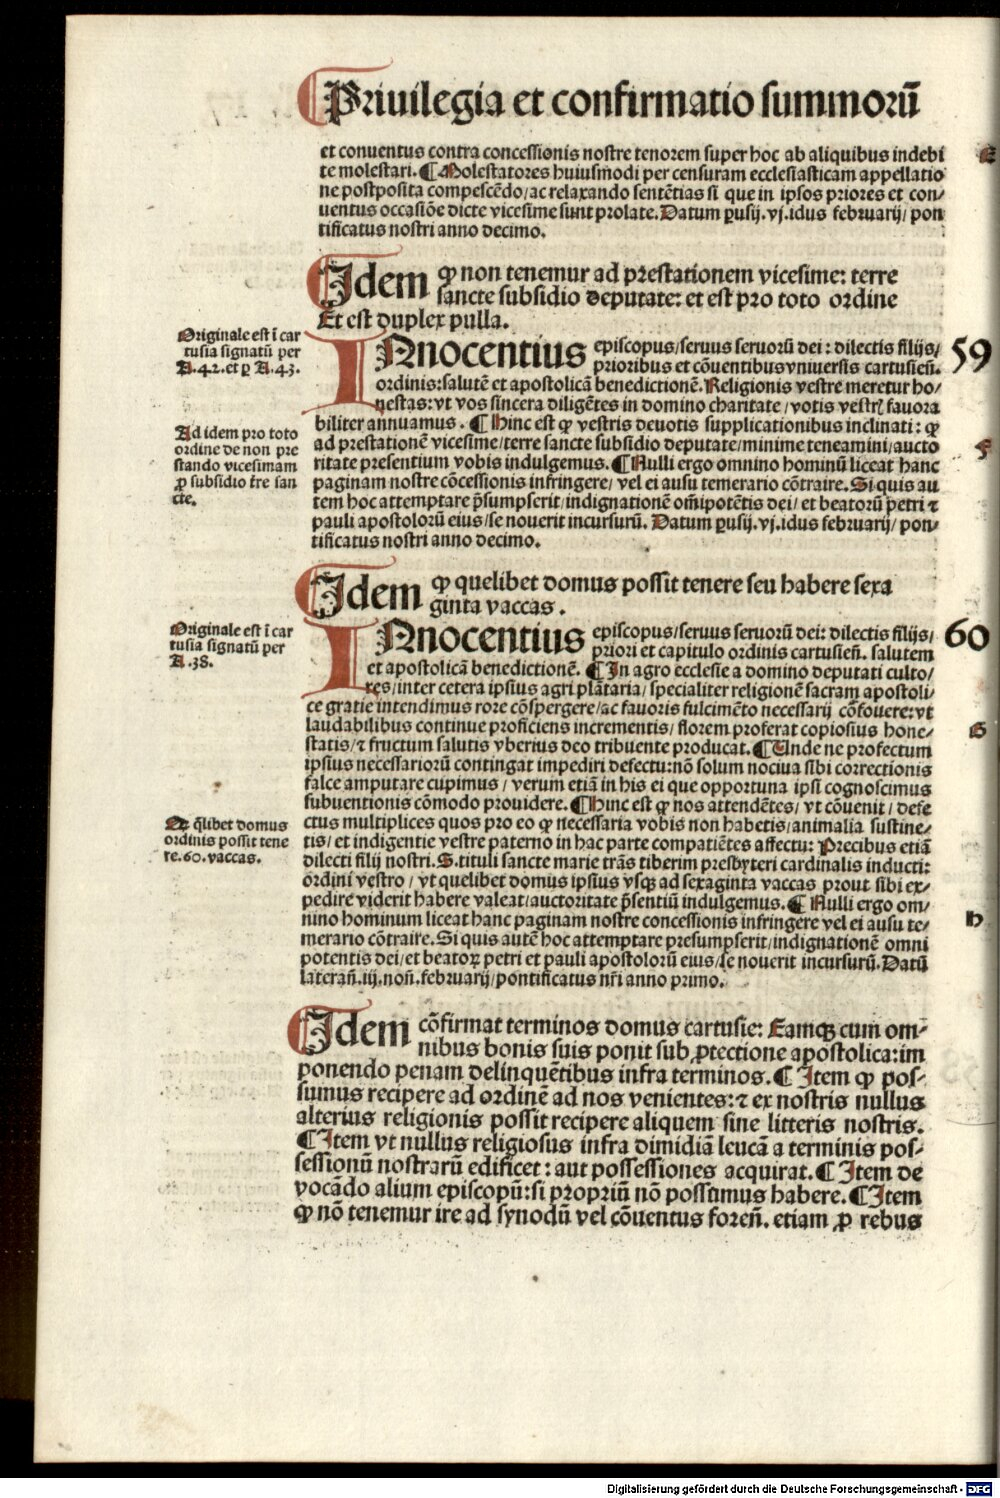 Priuilegia et confirmatio summorū
et conuentus contra concessionis nostre tenorem super hoc ab aliquibus indebi
te molestari. ¶ Molestatores huiusmodi per censuram ecclesiasticam appellatio
ne postposita compescēdo/ac relaxando sentētias si que in ipsos priores et con/
uentus occasiōe dicte vicesime sunt prolate. Datum ꝑusij. vj. idus februarij/ pon
tificatus nostri anno decimo.
E
Idem ꝙ non tenemur ad prestationem vicesime: terre
sancte subsidio deputate: et est pro toto ordine
Et est duplex pulla.
Originale est ī car
tusia signatū per
A. 42. et ꝑ A. 43.
INnocentius episcopus/seruus seruorū dei: dilectis filijs/
prioribus et cōuentibus vniuersis cartusieñ.
59
ordinis: salutē et apostolicā benedictionē. Religionis vestre meretur ho/
nestas: vt vos sincera diligētes in domino charitate/ votis vestrꝭ fauora
biliter annuamus. ¶ Hinc est ꝙ vestris deuotis supplicationibus inclinati: ꝙ
ad prestationē vicesime/terre sancte subsidio deputate/minime teneamini/aucto
ritate presentium vobis indulgemus. ¶ Nulli ergo omnino hominū liceat hanc
paginam nostre cōcessionis infringere/ vel ei ausu temerario cōtraire. Si quis au
tem hoc attemptare p̄sumpserit/indignationē om̄ipotētis dei/ et beatorū petri ⁊
pauli apostolorū eius/se nouerit incursurū. Datum ꝑusij. vj. idus februarij/ pon/
tificatus nostri anno decimo.
Ad idem pro toto
ordine de non pre
stando vicesimam
ꝓ subsidio tr̄e san
cte.
F
Idem ꝙ quelibet domus possit tenere seu habere sexa
ginta vaccas.
Originale est ī car
tusia signatū per
A. 38.
INnocentius episcopus/seruus seruorū dei: dilectis filijs/
priori et capitulo ordinis cartusieñ. salutem
60
et apostolicā benedictionē. ¶ In agro ecclesie a domino deputati culto/
res/inter cetera ipsius agri plātaria/ specialiter religionē sacram apostoli/
ce gratie intendimus rore cōspergere/ac fauoris fulcimēto necessarij cōfouere: vt
laudabilibus continue proficiens incrementis/ florem proferat copiosius hone/
statis/⁊ fructum salutis vberius deo tribuente producat. ¶ Unde ne profectum
ipsius necessariorū contingat impediri defectu: nō solum nociua sibi correctionis
falce amputare cupimus/ verum etiā in his ei que opportuna ipsi cognoscimus
subuentionis cōmodo prouidere. ¶ Hinc est ꝙ nos attendētes/ vt cōuenit/ defe
ctus multiplices quos pro eo ꝙ necessaria vobis non habetis/animalia sustine/
tis/ et indigentie vestre paterno in hac parte compatiētes affectu: Precibus etiā
dilecti filij nostri. S. tituli sancte marie trās tiberim presbyteri cardinalis inducti:
ordini vestro/ vt quelibet domus ipsius vsqꝫ ad sexaginta vaccas prout sibi ex/
pedire viderit habere valeat/auctoritate p̄sentiū indulgemus. ¶ Nulli ergo om/
nino hominum liceat hanc paginam nostre concessionis infringere vel ei ausu te/
merario cōtraire. Si quis autē hoc attemptare presumpserit/indignationē omni
potentis dei/et beatoꝝ petri et pauli apostolorū eius/se nouerit incursurū. Datū
laterañ. iij. noñ. februarij/pontificatus nr̄i anno primo.
G
De q̄libet domus
ordinis possit tene
re. 60. vaccas.
H
Idem cōfirmat terminos domus cartusie: Eamqꝫ cum om/
nibus bonis suis ponit sub ꝓtectione apostolica: im
ponendo penam delinquētibus infra terminos. ¶ Item ꝙ pos/
sumus recipere ad ordinē ad nos venientes: ⁊ ex nostris nullus
alterius religionis possit recipere aliquem sine litteris nostris.
¶ Item vt nullus religiosus infra dimidiā leucā a terminis pos/
sessionū nostrarū edificet: aut possessiones acquirat. ¶ Item de
vocādo alium episcopū: si propriū nō possumus habere. ¶ Item
ꝙ nō tenemur ire ad synodū vel cōuentus foreñ. etiam ꝓ rebus
Digitalisierung gefördert durch die Deutsche Forschungsgemeinschaft - DFG